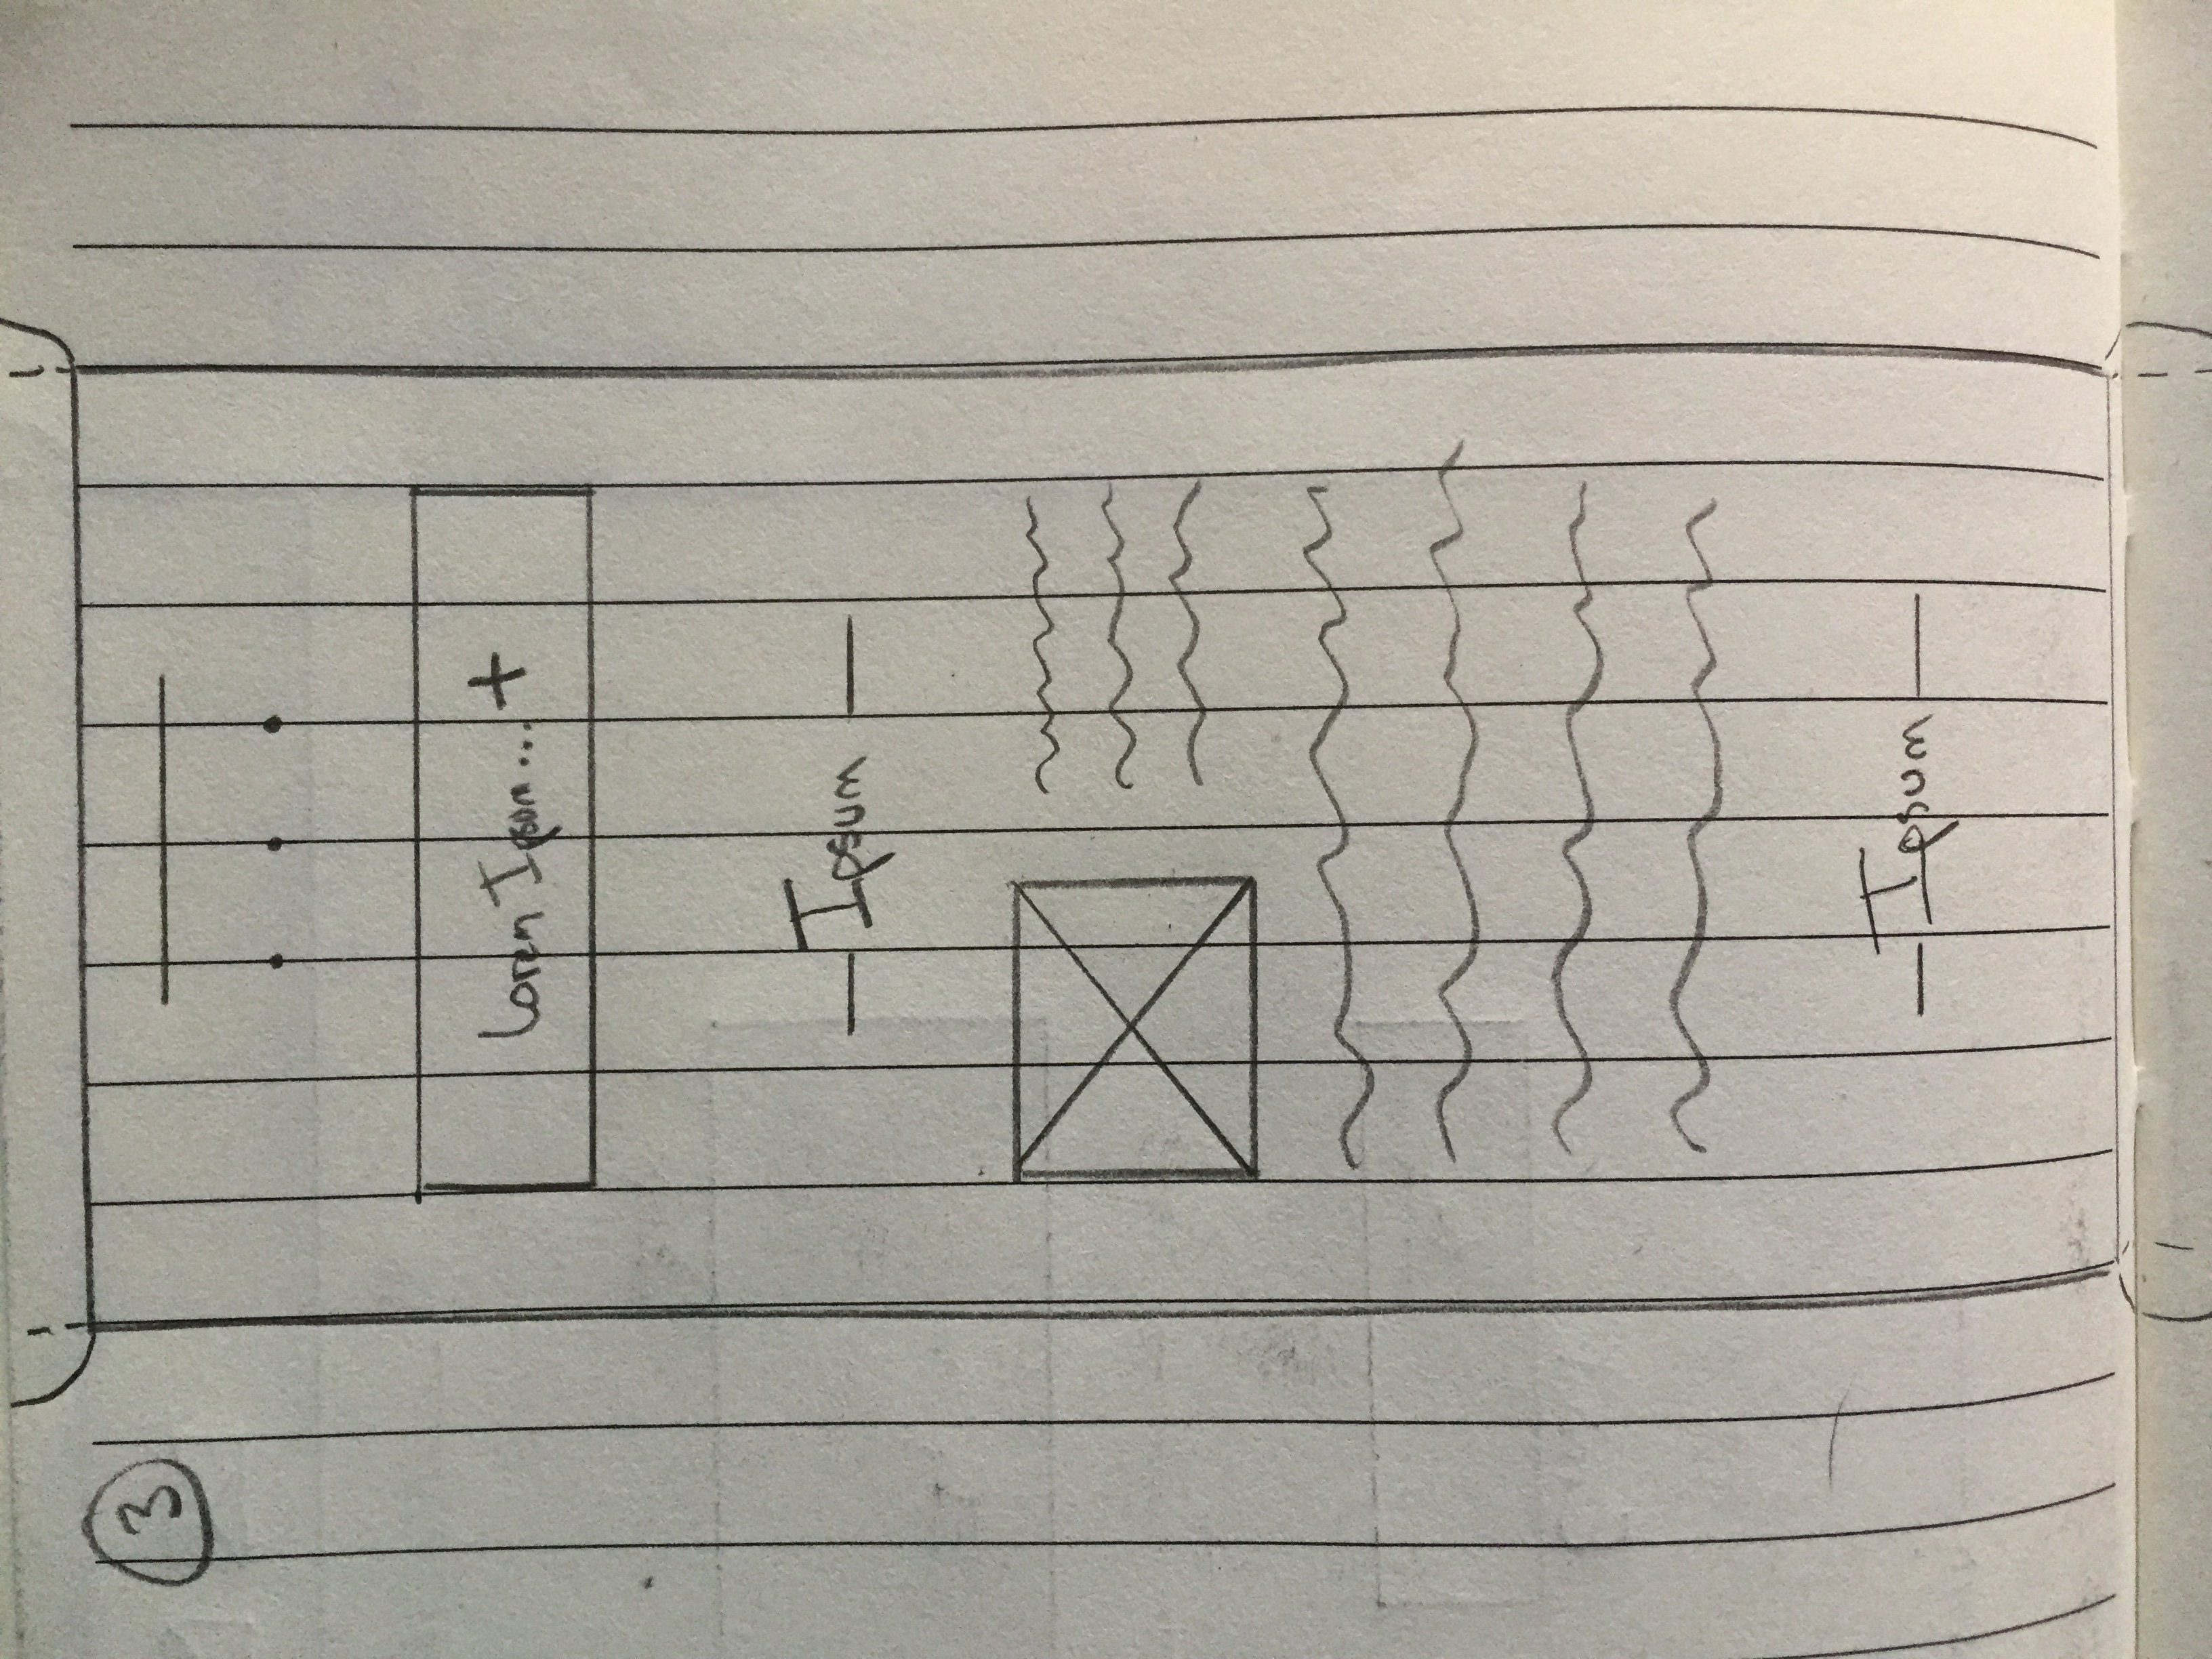 3
Lorem Ipsum... +
Ipsum
Ipsum